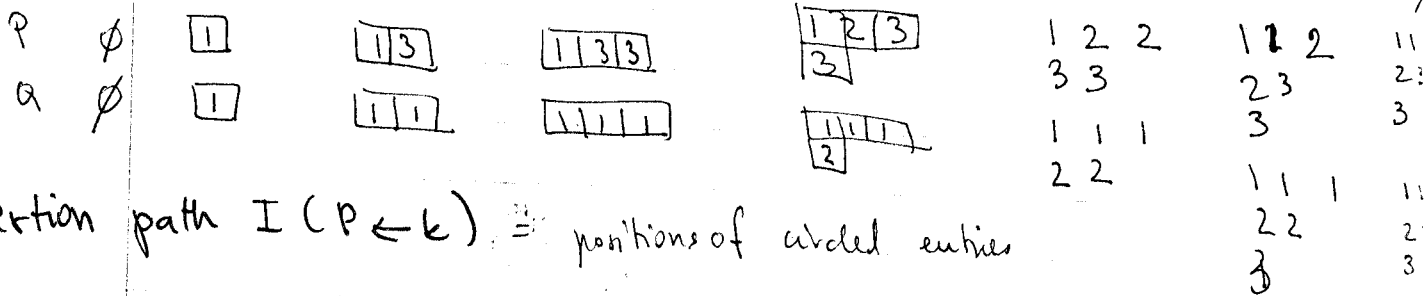 P ∅ 1 1 3 1 3 3 1 2 3 1 2 2 1 1 2 11
3 3 3 2 3 23
3 3
Q ∅ 1 1 1 1 1 1 1 1 1 1 1 1 1 1 1 11
2 2 2 2 2 2
3 3
ertion path I (P ← k) = positions of circled entries